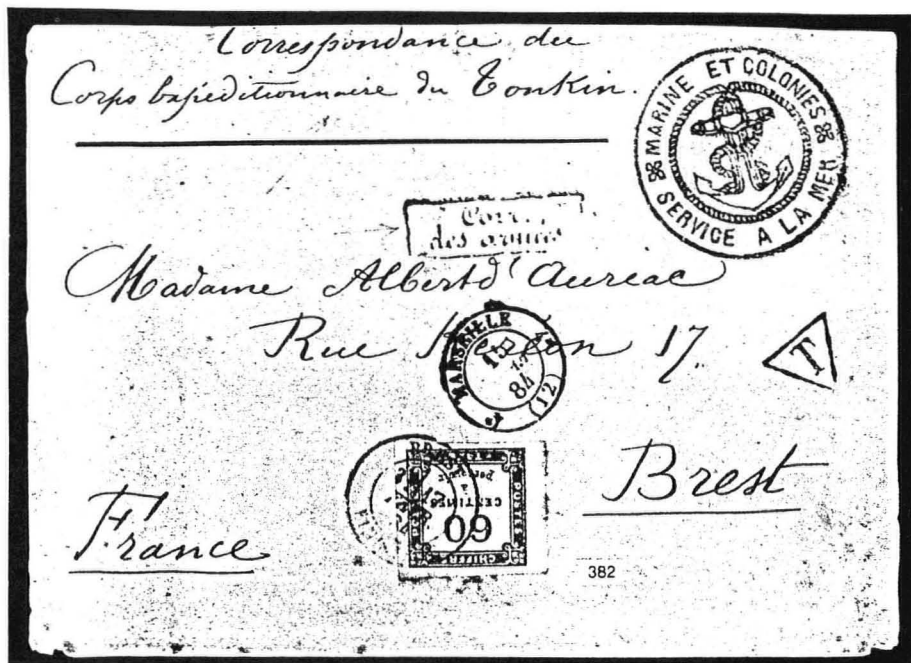 Correspondance du
Corps Expéditionnaire du Tonkin.
MARINE ET COLONIES
SERVICE A LA MER
Corr.
des armées
Madame Albert d'Aureac
Rue 17
T
MARSEILLE
15
84
(12)
Brest
France
CHIFFRE
60
CENTIMES
à
percevoir
382